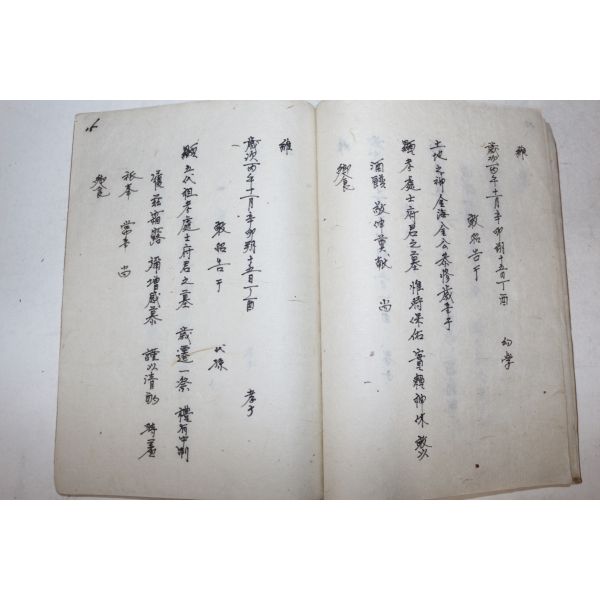 維
歲次丙午十一月辛卯朔十五日丁酉 幼學
敢昭告于
土地之神金海金公恭修歲事于
顯考處士府君之墓 惟時保佑 實賴神休 敢以
酒饌 敬伸奠獻 尚
饗
維
歲次丙午十一月辛卯朔十五日丁酉 孝子
敢昭告于 代孫
顯五代祖考處士府君之墓 歲遷一祭 禮有中制
履玆霜露 彌增感慕 謹以清酌
祗奉 常事 尚
饗